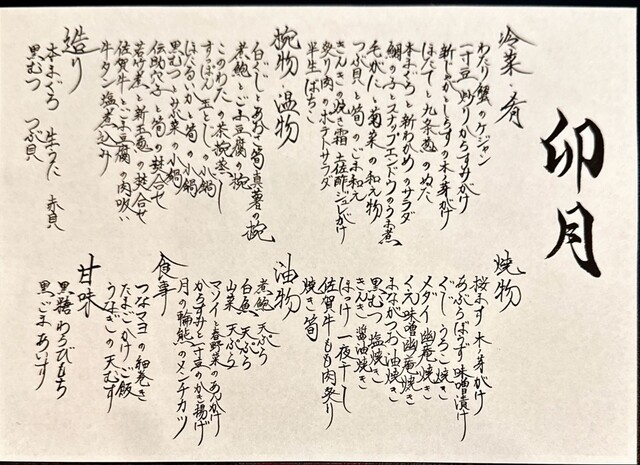 卯月
冷菜・肴
わたり蟹のケジャン
一寸豆 炒りからすみがけ
新じゃがとしらすの木の芽がけ
ほたてと九条葱のぬた
本まぐろと新わかめのサラダ
鯛の子とスナップエンドウのうま煮
毛がにと筍菜の和え物
つぶ貝と筍のごま和え
きんきの焼き霜 土佐酢ジュレがけ
炙り肉のポテトサラダ
半生ばちこ
椀物・温物
白ぐじとあおさ筍真薯の椀
煮鮑とごま豆腐の椀
このわたの茶碗蒸し
すっぽん玉とじの小鍋
ほたるいかと筍の小鍋
黒むつと山菜の小鍋
伝助穴子と筍の炊合せ
若竹煮と新玉葱の炊合せ
佐賀牛とごま豆腐の肉吸い
牛タン塩煮込み
造り
本まぐろ 生うに 赤貝
黒むつ つぶ貝
焼物
桜ます 木の芽がけ
あぶらぼうず 味噌漬け
ぐじ うろこ焼き
メダイ 幽庵焼き
くえ 味噌幽庵焼き
まながつお 油焼き
黒むつ 塩焼き
きんき 醤油焼き
ほっけ 一夜干し
佐賀牛 もも肉炙り
焼き筍
油物
煮鮑 天ぷら
白魚 天ぷら
山菜 天ぷら
マソイと春野菜のあんかけ
からすみと一寸豆のかき揚げ
月の輪熊のメンチカツ
食事
つなマヨの細巻き
たまごかけご飯
うなぎの天むす
甘味
黒糖わらびもち
黒ごまあいす